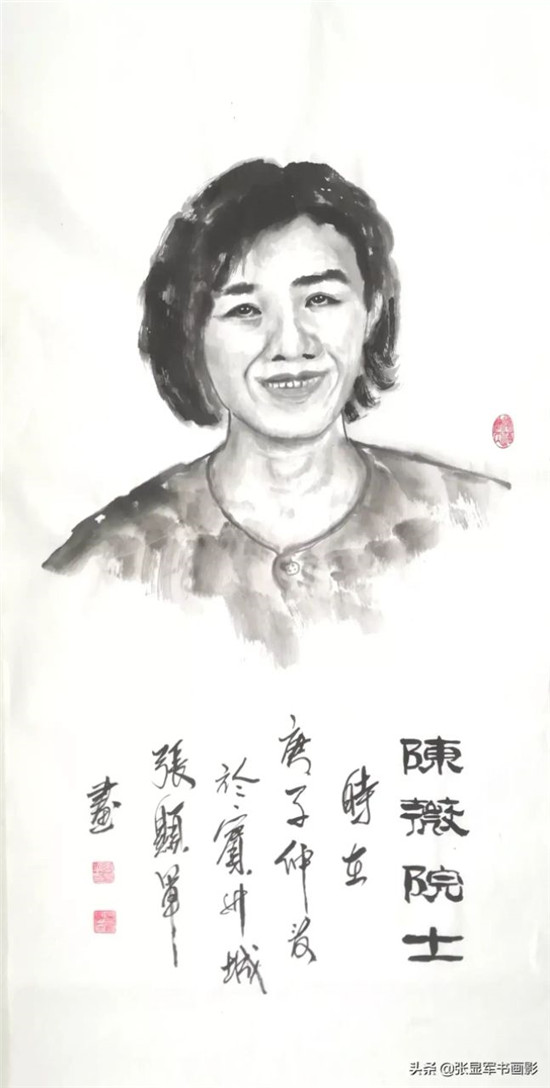 陳薇院士
時在
庚子仲
於賓州城
張顯軍
畫
头条 @张显军书画影